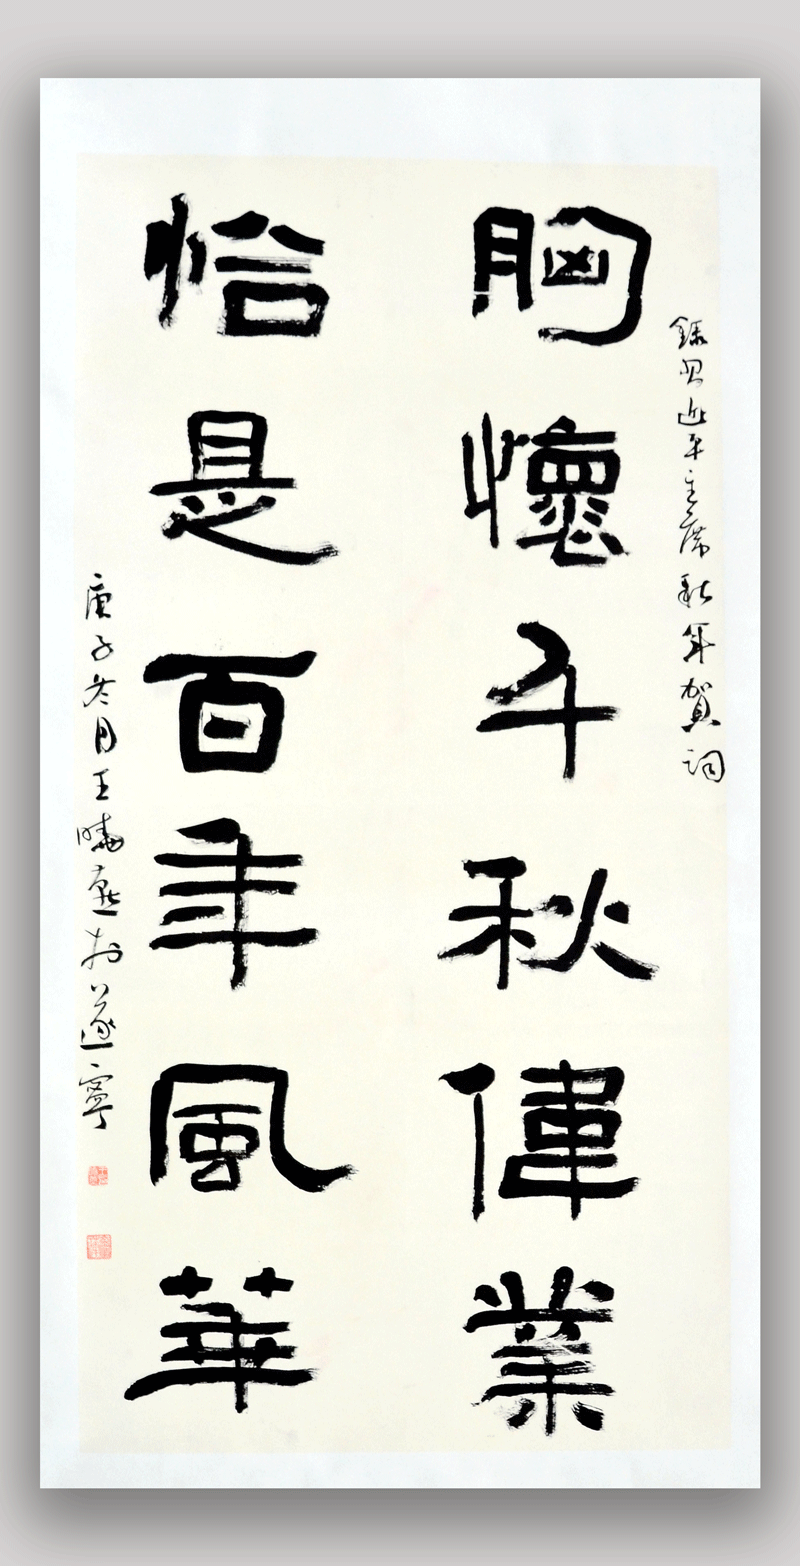 錄習近平主席新年賀詞
胸懷千秋偉業
恰是百年風華
庚子冬月王曉燕於遂寧